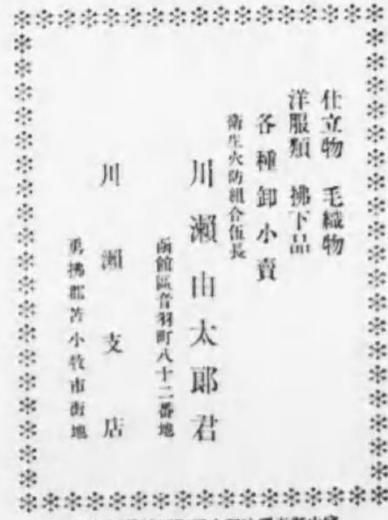 仕立物 毛織物
洋服類 拂下品
各種卸小賣
衛生火防組合伍長
川瀬由太郎君
函館區音羽町八十二番地
川瀬支店
勇拂郡苫小牧市街地